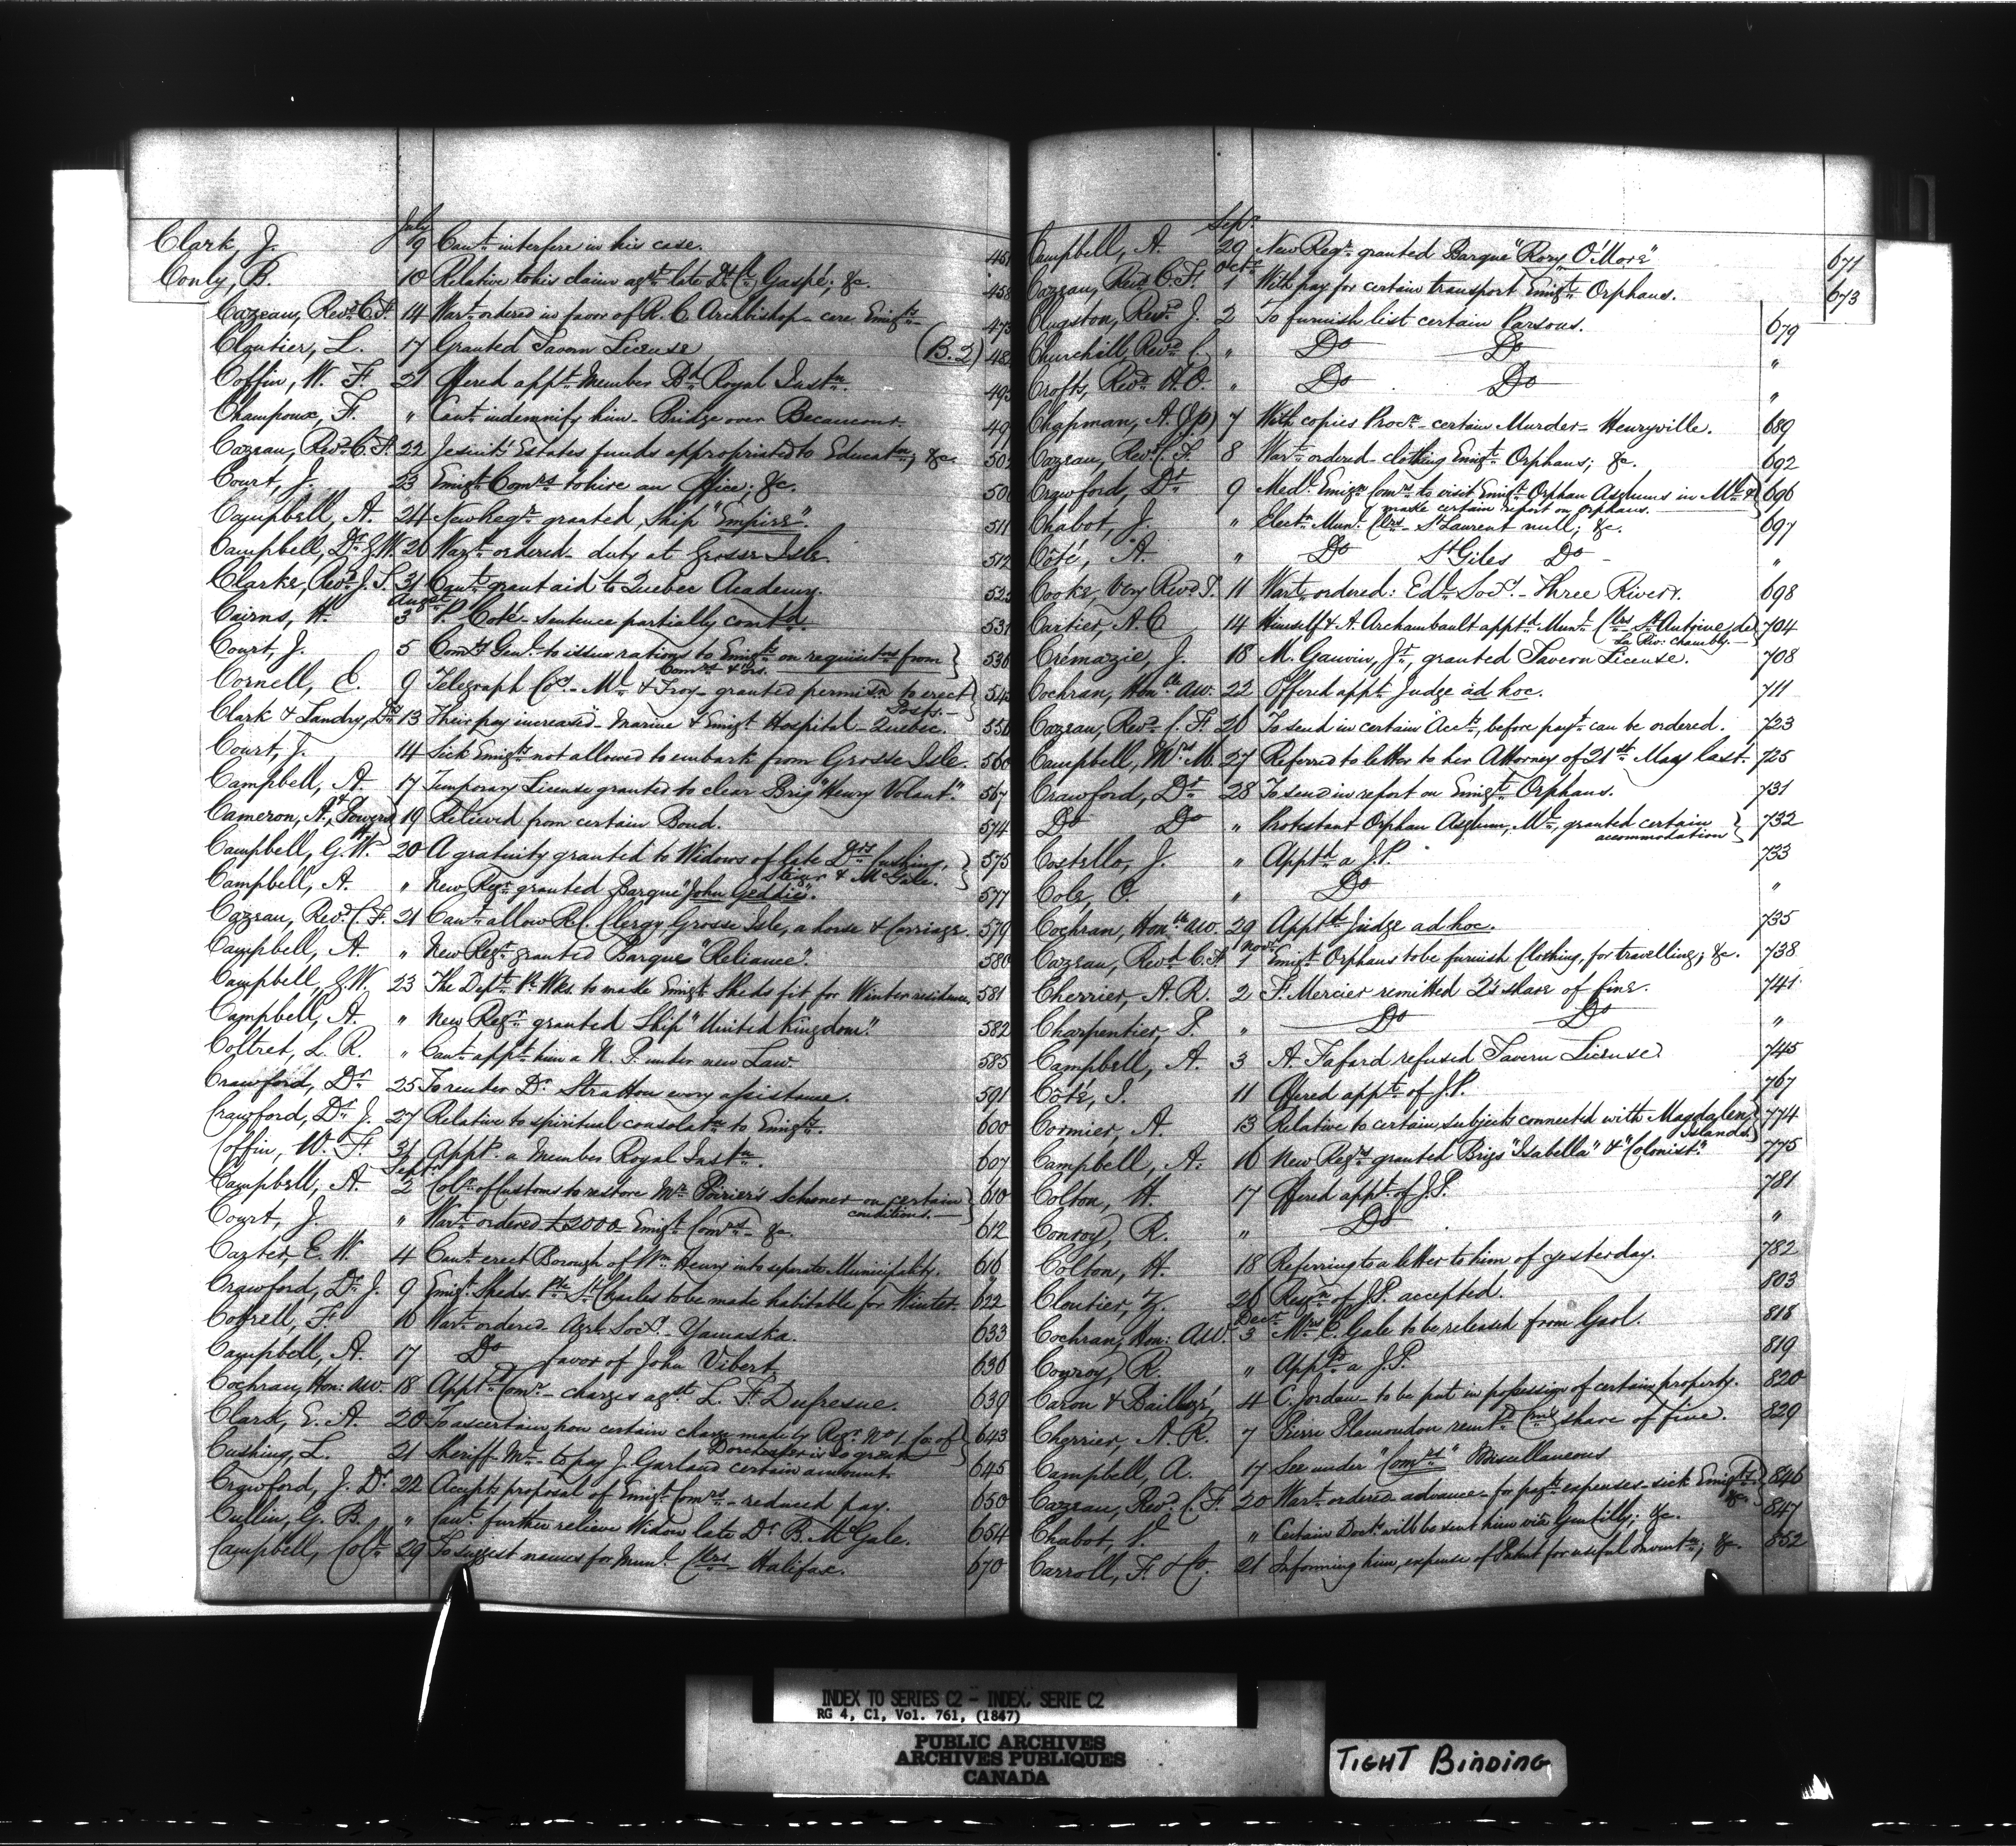 July
Clark, J. 9 Can't interfere in his case. 451
Conly, B. 10 Relative to his claim agst late Dt. Ct. Gaspé; &c. 458
Cazeau, Revd C. F. 14 Wart ordered in favor of R. C. Archbishop - care Emigts 473
Cloutier, L. 17 Granted Tavern License (B.2) 482
Coffin, W. F. 21 Offered appt Member Bd Royal Instn. 493
Champoux, F. " Can't indemnify him - Bridge over Becancour. 49
Cazeau, Revd C. F. 22 Jesuits' Estates funds appropriated to Educatn; &c. 502
Court, J. 23 Emigt Comrs to hire an Office; &c. 506
Campbell, A. 24 New Regr granted Ship "Empire". 511
Campbell, Dr G.W. 26 Wart ordered - duty at Grosse Isle. 512
Clarke, Revd J. S. 31 Can't grant aid to Quebec Academy. 522
August
Cairns, H. 3 P. Coté - sentence partially comtd. 531
Court, J. 5 Comy Genl to issue rations to Emigts on requisitns from 536
Comrs &ors.
Cornell, E. 9 Telegraph Coy - Ml & Troy - granted permisn to erect 545
Posts.
Clark & Landry, Drs 13 Their pay increased - Marine & Emigt Hospital - Quebec. 556
Court, J. 14 Sick Emigts not allowed to embark from Grosse Isle. 560
Campbell, A. 17 Temporary License granted to clear Brig "Henry Volant". 567
Cameron, A. & Powers 19 Relieved from certain Bond. 574
Campbell, G. W. 20 A gratuity granted to Widows of late Drs Cushing, 575
& McGale.
Campbell, A. " New Regr granted Barque "John Geddie". 577
Cazeau, Revd C. F. 21 Can't allow R. C. Clergy, Grosse Isle, a horse & Carriage. 579
Campbell, A. " New Regr granted Barque "Reliance". 580
Campbell, G. W. 23 The Dept P. Wks. to make Emigt Sheds fit for Winter residence. 581
Campbell, A. " New Regr granted Ship "United Kingdom". 582
Coltret, L. R. " Can't appt him a N. P. under new Law. 585
Crawford, Dr. 25 To render Dr. Stratton every assistance. 591
Crawford, Dr J. 27 Relative to spiritual consolatn to Emigts. 600
Coffin, W. F. 31 Appd a Member Royal Instn. 607
Septr
Campbell, A. 2 Colr of Customs to restore Mr Poirier's Schooner on certain 610
conditions.
Court, J. " Wart ordered £2000 - Emigt Comrs - &c. 612
Carter, E. W. 4 Can't erect Borough of Wm Henry into separate Municipality. 616
Crawford, Dr J. 9 Emigt Sheds Pte St Charles to be made habitable for Winter. 622
Cottrell, F. 16 Wart ordered - Agrl Socy - Yamaska. 633
Campbell, A. 17 Do favor of John Vibert. 636
Cochran, Hon: AW. 18 Apptd Comr - charges agst L. F. Dufresne. 639
Clark, E. A. 20 To ascertain how certain charge made by Regr No 1. Co: of 643
Dorchester is so great
Cushing, L. 21 Sheriff Ml - to pay J. Garland certain amount. 645
Crawford, J. Dr. 22 Accepts proposal of Emigt Comrs - reduced pay. 650
Cullin, G. B. " Can't further relieve Widow late Dr B. McGale. 654
Campbell, Coll 29 To suggest names for Munl Clrs - Halifax. 670
Sepr.
Campbell, A. 29 New Regr granted Barque "Rory O'More" 671
Octr
Cazeau, Revd C. F. 1 With pay for certain transport Emigt Orphans. 673
Clugston, Revd J. 2 To furnish list certain Parsons. 679
Churchill, Revd C. " Do Do "
Crofts, Revd H. O. " Do Do "
Chapman, A. (Jp) 7 With copies Procn - certain Murder - Henryville. 689
Cazeau, Revd C. F. 8 Wart ordered - clothing Emigt Orphans; &c. 692
Crawford, Dr 9 Medl Emign Comrs to visit Emigt Orphan Asylums in Ml & 696
make certain report on orphans.
Chabot, J. " Electn Munl Clrs - St Laurent null; &c. 697
Côté, A. " Do St Giles Do "
Cooke, Very Revd T. 11 Wart ordered: Edl Socy - Three Rivers. 698
Cartier, A. C 14 Himself & A. Archambault apptd Munl Clrs St Antoine de 704
la Riv: Chambly.
Crémazie, J. 18 M. Gauvin, Jr, granted Tavern License. 708
Cochran, Honble AW. 22 Offered appt Judge ad hoc. 711
Cazeau, Revd C. F. 26 To send in certain Accts, before payt can be ordered. 723
Campbell, Mrs M. 27 Referred to letter to her Attorney of 21st May last. 725
Crawford, Dr 28 To send in report on Emigt Orphans. 731
Do Do " Protestant Orphan Asylum, Ml, granted certain 732
accommodation
Costello, J. " Apptd a J.P. 733
Cole, C. " Do "
Cochran, Honble AW. 29 Apptd Judge ad hoc. 735
Novr
Cazeau, Revd C. F. 1 Emigt Orphans to be furnish clothing, for travelling; &c. 738
Cherrier, A. R. 2 F. Mercier remitted 2's share of fine. 741
Charpentier, P. " Do Do "
Campbell, A. 3 A. Fafard refused Tavern License. 745
Côté, I. 11 Offered appt of J.P. 767
Cormier, A. 13 Relative to certain subjects connected with Magdalen 774
Islands.
Campbell, A. 16 New Regrs granted Brigs "Isabella" & "Colonist". 775
Colton, H. 17 Offered appt of J.P. 781
Conroy, R. " Do "
Colton, H. 18 Referring to a letter to him of yesterday. 782
Cloutier, Z. 26 Resgn of J.P. accepted. 803
Decr
Cochran, Hon: AW. 3 Mrs E. Gale to be released from Gaol. 818
Conroy, R. " Apptd a J.P. 819
Caron & Baillargé, 4 C. Jordan - to be put in possession of certain property. 820
Cherrier, A. R. 7 Pierre Plamondon remitd Crns share of fine. 829
Campbell, A. 17 See under "Comrs" Miscellaneous
Cazeau, Revd C. F. 20 Wart ordered advance - for payts expenses - sick Emigts 846
&c.
Chabot, " Certain Docts will be sent him via Gentilly; &c. 847
Carroll, F. & Co. 21 Informing him, expense of Patent for useful Inventn; &c. 852
INDEX TO SERIES C2 - INDEX, SERIE C2
RG 4, C1, Vol. 761, (1847)
PUBLIC ARCHIVES
ARCHIVES PUBLIQUES
CANADA
TIGHT BINDING